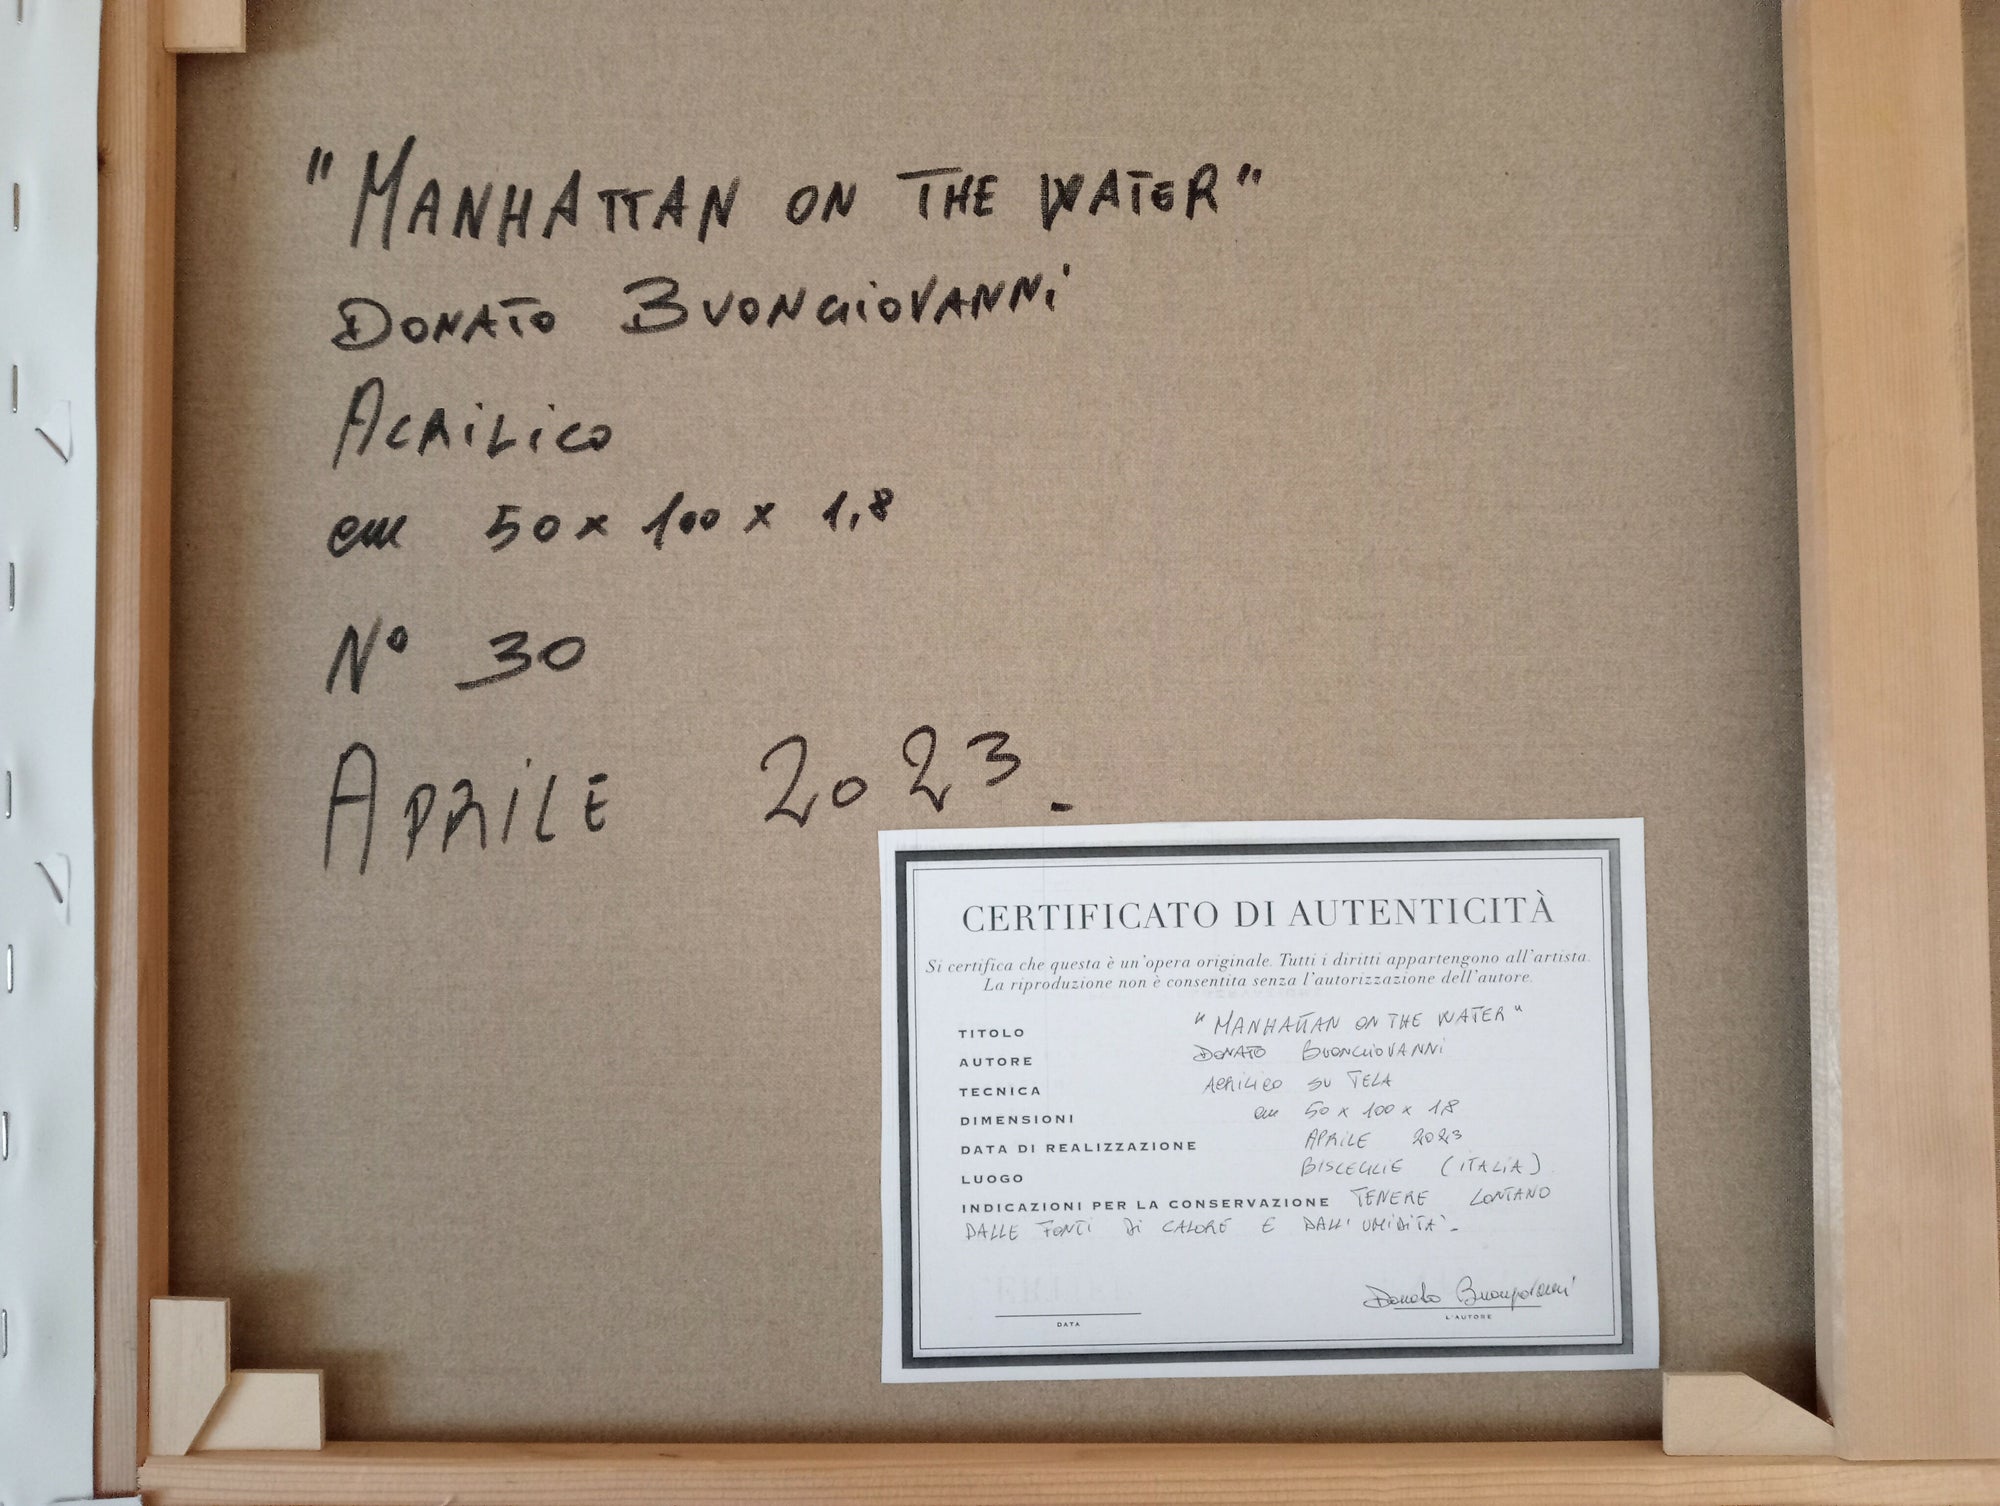 "MANHATTAN ON THE WATER"
DONATO BUONGIOVANNI
ACRILICO
cm 50 x 100 x 1,8
N° 30
APRILE 2023.
CERTIFICATO DI AUTENTICITÀ
Si certifica che questa è un'opera originale. Tutti i diritti appartengono all'artista.
La riproduzione non è consentita senza l'autorizzazione dell'autore.
TITOLO "MANHATTAN ON THE WATER"
AUTORE DONATO BUONGIOVANNI
TECNICA ACRILICO SU TELA
DIMENSIONI cm 50 x 100 x 1,8
DATA DI REALIZZAZIONE APRILE 2023
LUOGO BISCEGLIE (ITALIA)
INDICAZIONI PER LA CONSERVAZIONE TENERE LONTANO
DALLE FONTI DI CALORE E DALL'UMIDITA'.
Donato Buongiovanni
DATA L'AUTORE